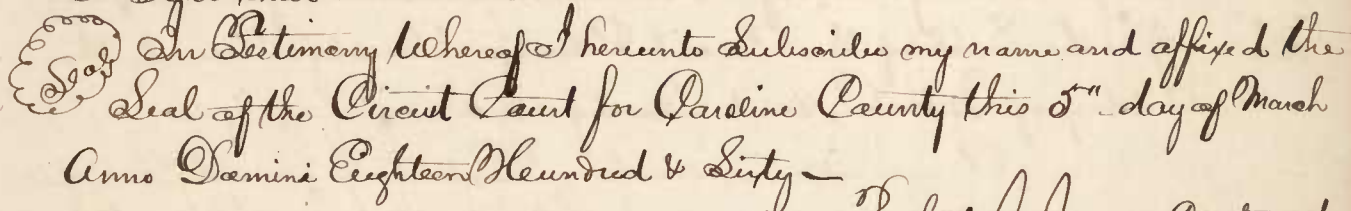 Seal In Testimony Whereof I hereunto Subscribe my name and affixed the
Seal of the Circuit Court for Caroline County this 5" day of March
Anno Domini Eighteen Hundred & Sixty -